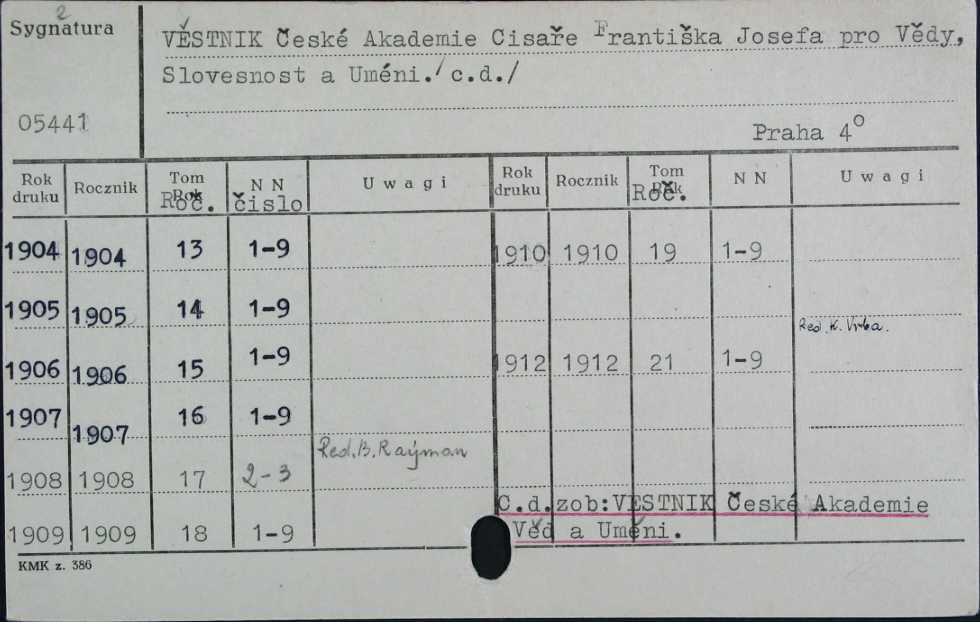 2
Sygnatura
05441
VĚSTNIK České Akademie Cisaře Františka Josefa pro Vědy,
Slovesnost a Uméni./ c.d./
Praha 4°
Rok druku Rocznik Tom Rok Roč. N N čislo Uwagi Rok druku Rocznik Tom Rok Roč. N N Uwagi
1904 1904 13 1-9 1910 1910 19 1-9
1905 1905 14 1-9
Red. K. Vrba.
1906 1906 15 1-9 1912 1912 21 1-9
1907 1907 16 1-9
Red. B. Raýman
1908 1908 17 2-3
C.d.zob:VESTNIK České Akademie
1909 1909 18 1-9 Věd a Uměni.
KMK z. 386